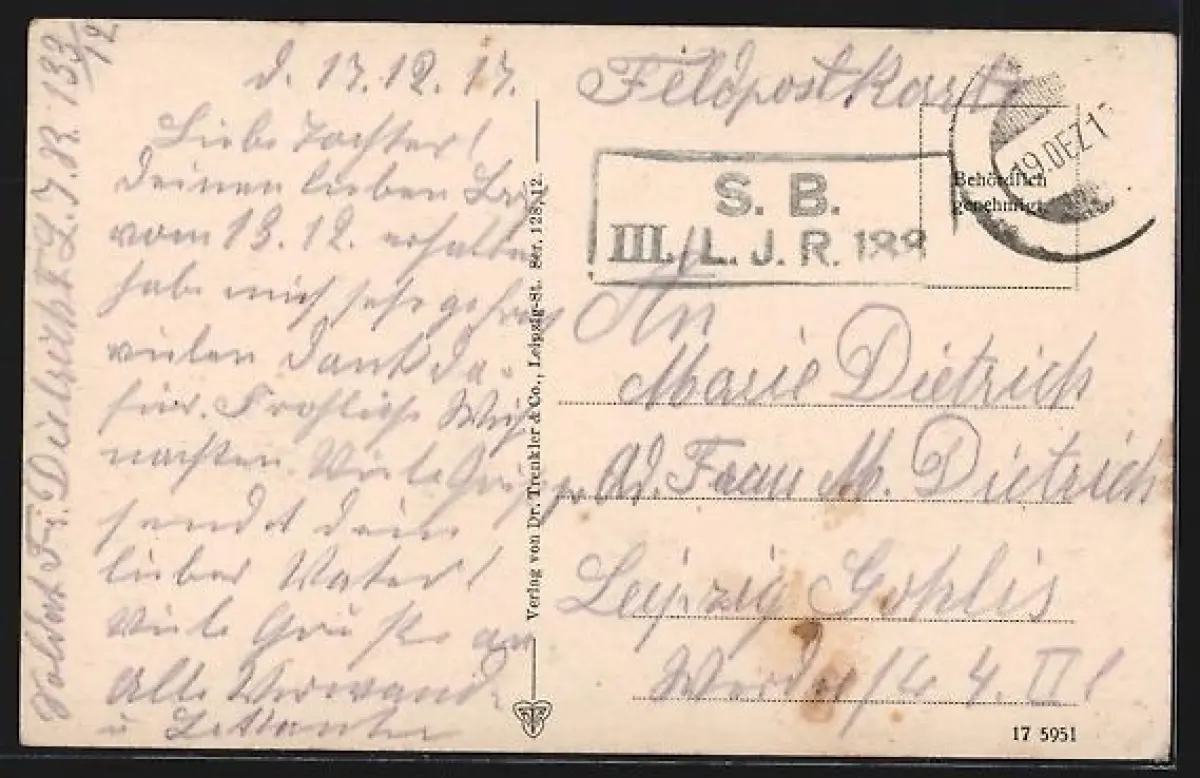 d. 17.12.17.
Liebe Tochter!
Deinen lieben
vom 13.12. erhalten
habe mich sehr gefreut
vielen Dank da-
für. Fröhliche Weih
nachten. Viele Grüße
sendet dein
lieber Vater!
Viele Grüße an
Alle Verwand-
u Bekannte
Soldat Fr. Dietrich L.J.R. 133/12
Verlag von Dr. Trenkler & Co., Leipzig-St. Ser. 128, 12.
Feldpostkarte
19.DEZ.1
Behördlich
genehmigt
S. B.
III./L. J. R. 133
An
Marie Dietrich
Ad. Frau M. Dietrich
Leipzig Gohlis
4. II l
17 5951